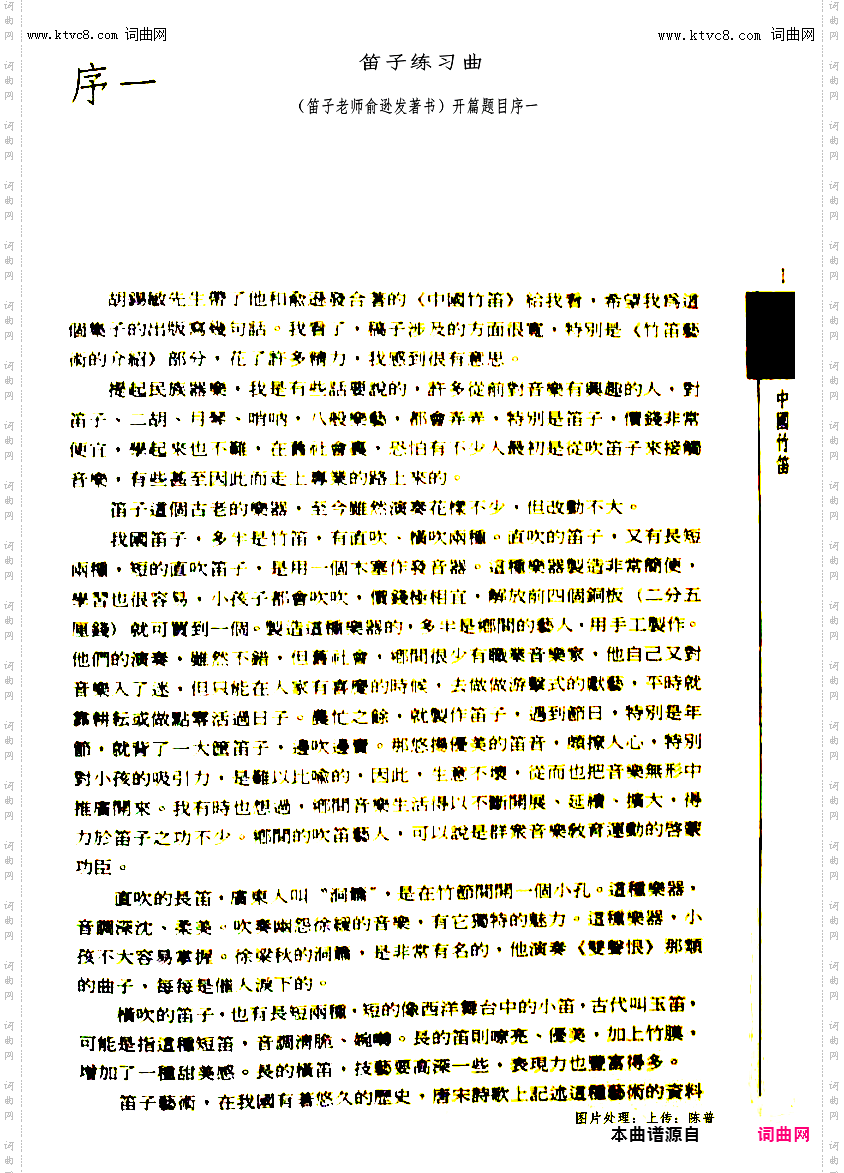 www.ktvc8.com 词曲网
www.ktvc8.com 词曲网
笛子练习曲
序一
（笛子老师俞逊发著书）开篇题目序一
胡錫敏先生帶了他和俞遜發合著的《中國竹笛》給我看，希望我爲這
個集子的出版寫幾句話。我看了，稿子涉及的方面很寬，特別是《竹笛藝
術的介紹》部分，花了許多精力，我感到很有意思。
提起民族器樂，我是有些話要說的，許多從前對音樂有興趣的人，對
笛子、二胡、月琴、哨吶，八般樂藝，都會弄弄，特別是笛子，價錢非常
便宜，學起來也不難，在舊社會裏，恐怕有不少人最初是從吹笛子來接觸
音樂，有些甚至因此而走上專業的路上來的。
笛子這個古老的樂器，至今雖然演奏花樣不少，但改動不大。
我國笛子，多半是竹笛，有直吹、橫吹兩種。直吹的笛子，又有長短
兩種，短的直吹笛子，是用一個木塞作發音器。這種樂器製造非常簡便，
學習也很容易，小孩子都會吹吹，價錢極相宜，解放前四個銅板（二分五
厘錢）就可買到一個。製造這種樂器的，多半是鄉間的藝人，用手工製作。
他們的演奏，雖然不錯，但舊社會，鄉間很少有職業音樂家，他自己又對
音樂入了迷，但只能在人家有喜慶的時候，去做做游擊式的獻藝，平時就
靠耕耘或做點零活過日子。農忙之餘，就製作笛子，遇到節日，特別是年
節，就背了一大籮笛子，邊吹邊賣。那悠揚優美的笛音，頗撩人心，特別
對小孩的吸引力，是難以比喻的，因此，生意不壞，從而也把音樂無形中
推廣開來。我有時也想過，鄉間音樂生活得以不斷開展、延續、擴大，得
力於笛子之功不少。鄉間的吹笛藝人，可以說是群衆音樂教育運動的啓蒙
功臣。
直吹的長笛，廣東人叫“洞簫”，是在竹節間開一個小孔。這種樂器，
音調深沈、柔美。吹奏幽怨徐緩的音樂，有它獨特的魅力。這種樂器，小
孩不大容易掌握。徐梁秋的洞簫，是非常有名的，他演奏《雙聲恨》那類
的曲子，每每是催人淚下的。
橫吹的笛子，也有長短兩種，短的像西洋舞台中的小笛，古代叫玉笛，
可能是指這種短笛，音調清脆、婉囀。長的笛則嘹亮、優美，加上竹膜，
增加了一種甜美感。長的橫笛，技藝要高深一些，表現力也豐富得多。
笛子藝術，在我國有著悠久的歷史，唐宋詩歌上記述這種藝術的資料
1
中國竹笛
图片处理：上传：陈普
本曲谱源自 词曲网